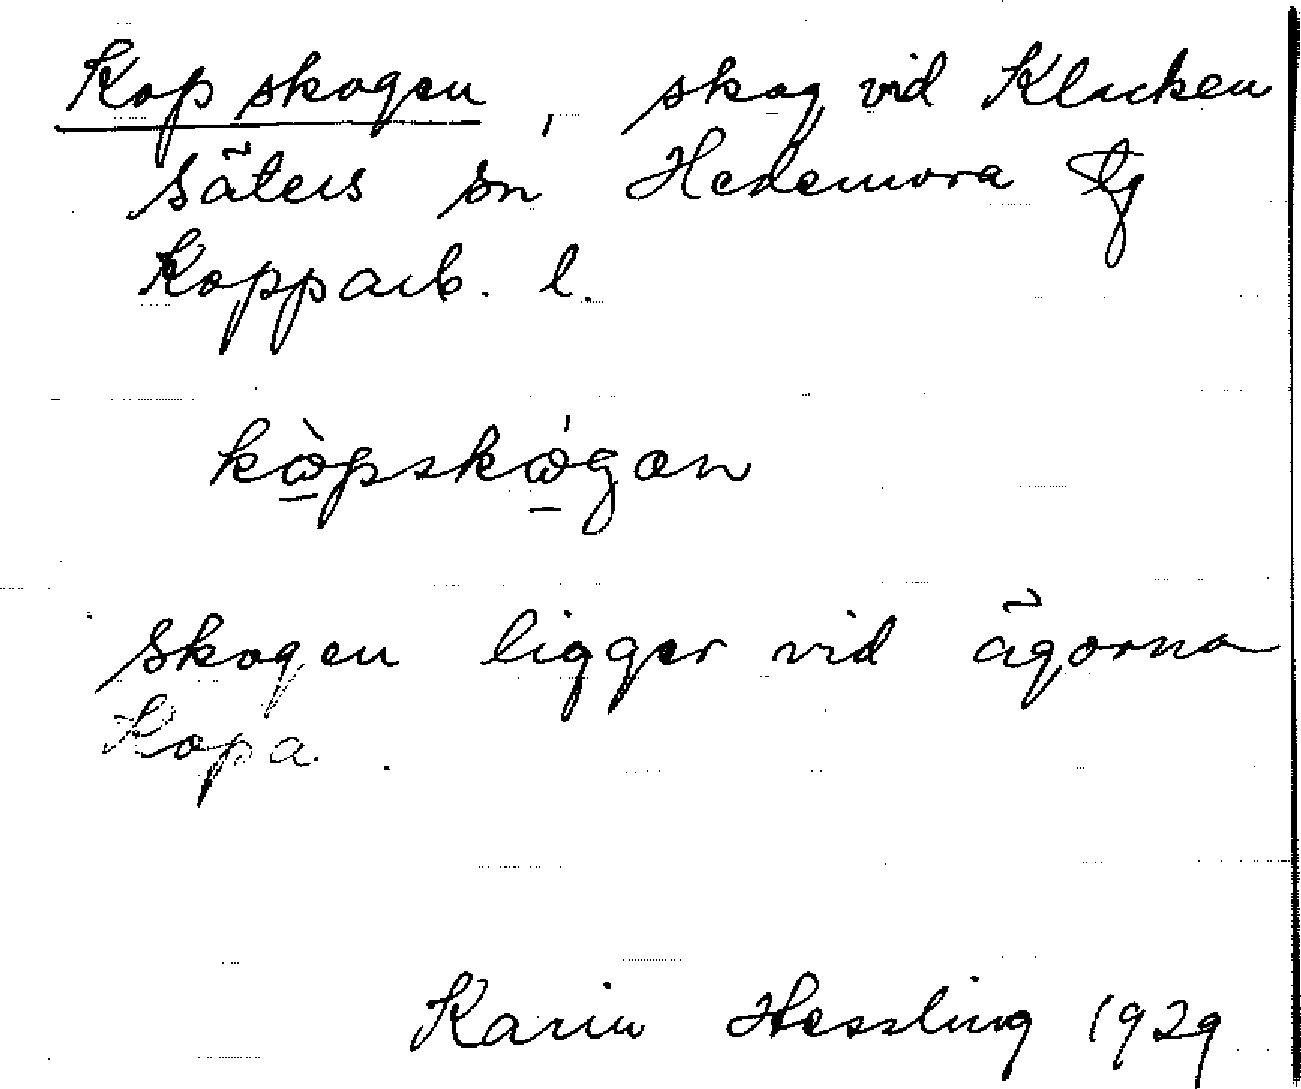 Kopskogen, skog vid Klacken
Säters sn Hedemora tg
Kopparb. l.
kὼ̱pskώ̱gən
Skogen ligger vid ägorna
Kopa.
Karin Hessling 1929